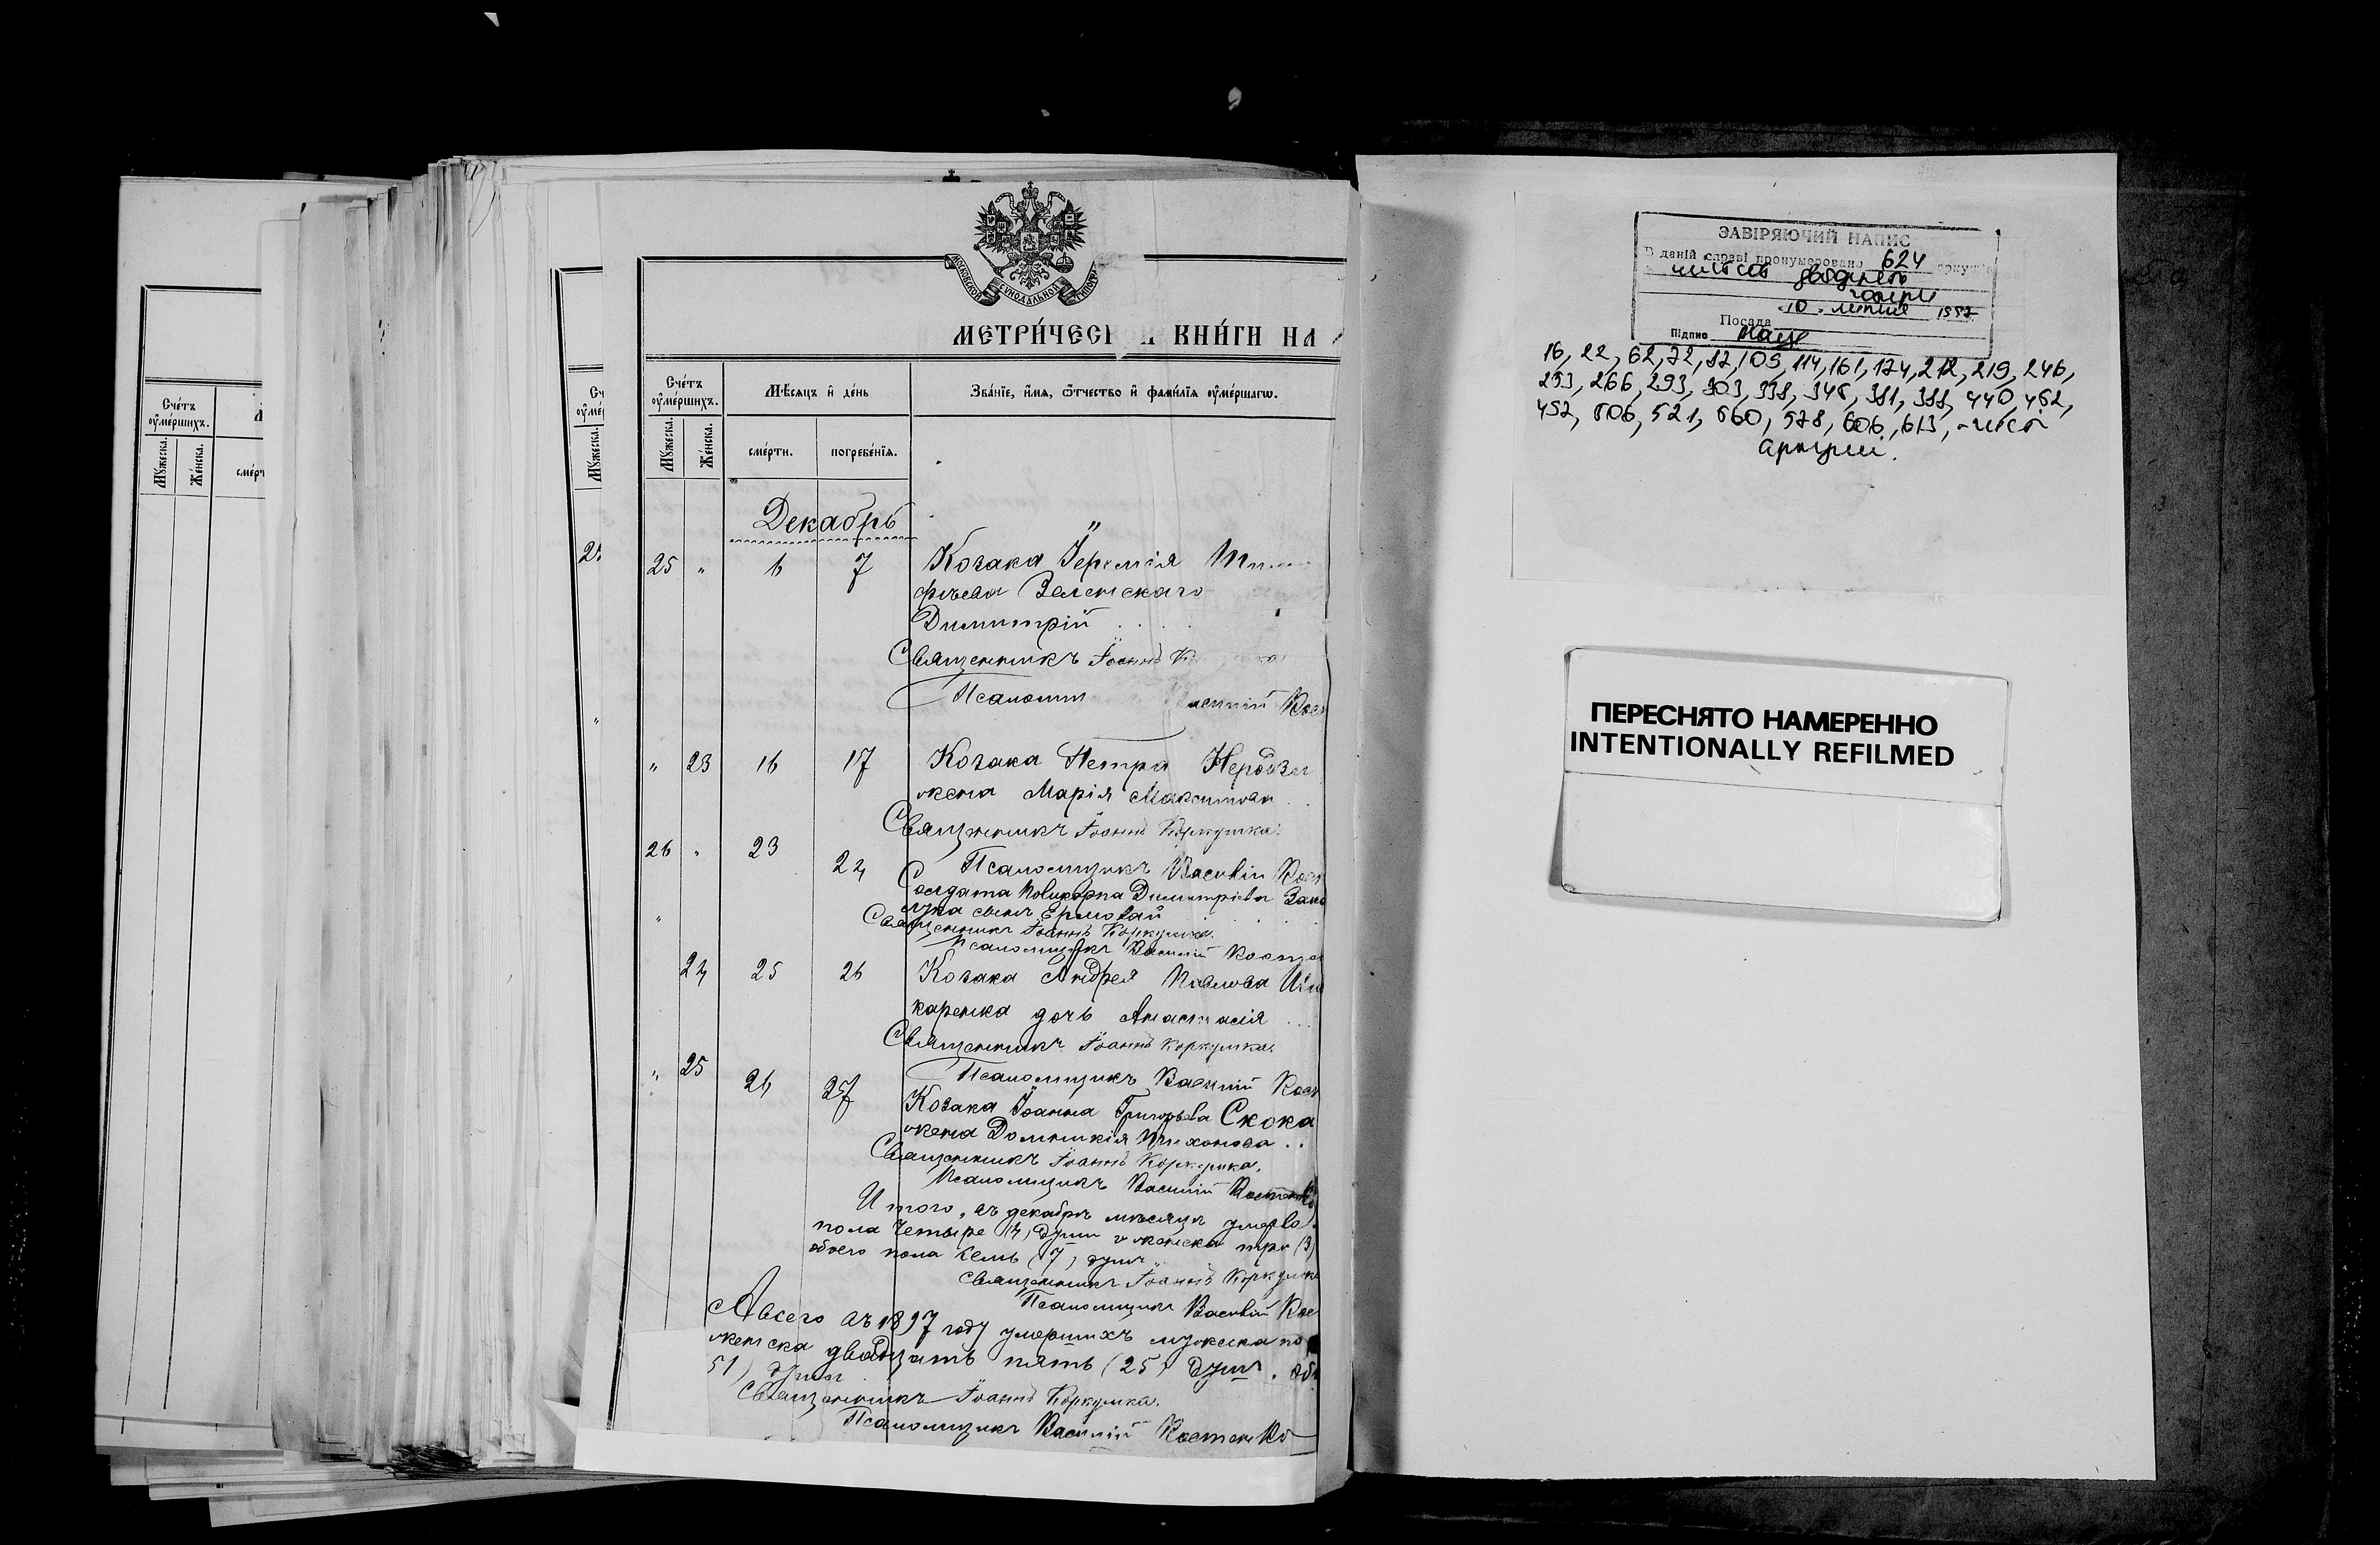 МОСКОВСКОЙ СѴНОДАЛЬНОЙ ТИПОГР
МЕТРИ́ЧЕС КНИ́ГИ НА
Сче́тъ
оу҆ме́ршихъ.
Мѣ́сяцъ и҆ де́нь
Зва́нїе, и҆́мѧ, ѻ҆́тчество и҆ фами́лїѧ оу҆ме́ршагѡ.
Мꙋ́жеска.
Же́нска.
сме́рти.
погребе́нїѧ.
Декабрь
25 " 6 7 Козака Іеремія
фѣева Зеленскаго
Димитрій
Священникъ Іоаннъ
Псаломщ Василій Кост
" 23 16 17 Козака Петра
жена Марія Максимова
Священникъ Іоаннъ Коркушка.
26 " 23 24 Псаломщикъ Василій Кост
Солдата Поликарпа Димитріева
сынъ Ермолай
Священникъ Іоаннъ Коркушка.
Псаломщикъ Василій Костен
" 24 25 26 Козака Андрея Павлова
каренка дочь Анастасія
Священникъ Іоаннъ Коркушка.
" 25 26 27 Псаломщикъ Василій Кост
Козака Іоанна Григорьева Скока
жена Домникія Тихонова
Священникъ Іоаннъ Коркушка.
Псаломщикъ Василій Костенко
Итого, въ декабрѣ мѣсяцѣ умерло
пола четыре (4) душ и женска три (3)
обоего пола семь (7) душ
Священникъ Іоаннъ Коркушка
Псаломщикъ Василій Кос
А всего въ 1897 году умершихъ мужска по
женска двадцать пять (25) душъ. Об
51) душъ
Священникъ Іоаннъ Коркушка.
Псаломщикъ Василій Костенко
Сче́тъ
оу҆ме́ршихъ.
Мꙋ́жеска.
Же́нска.
сме́рт
ЗАВІРЯЮЧИЙ НАПИС
В даній справі пронумеровано 624 аркушів
шістсот двадцять
чотири
10 липня
Посада
Підпис
16, 22, 62, 72, 87, 109, 114, 161, 174, 212, 219, 246,
253, 266, 293, 303, 338, 345, 381, 388, 440, 452,
457, 506, 521, 560, 578, 606, 613, - чисті
аркуші.
ПЕРЕСНЯТО НАМЕРЕННО
INTENTIONALLY REFILMED